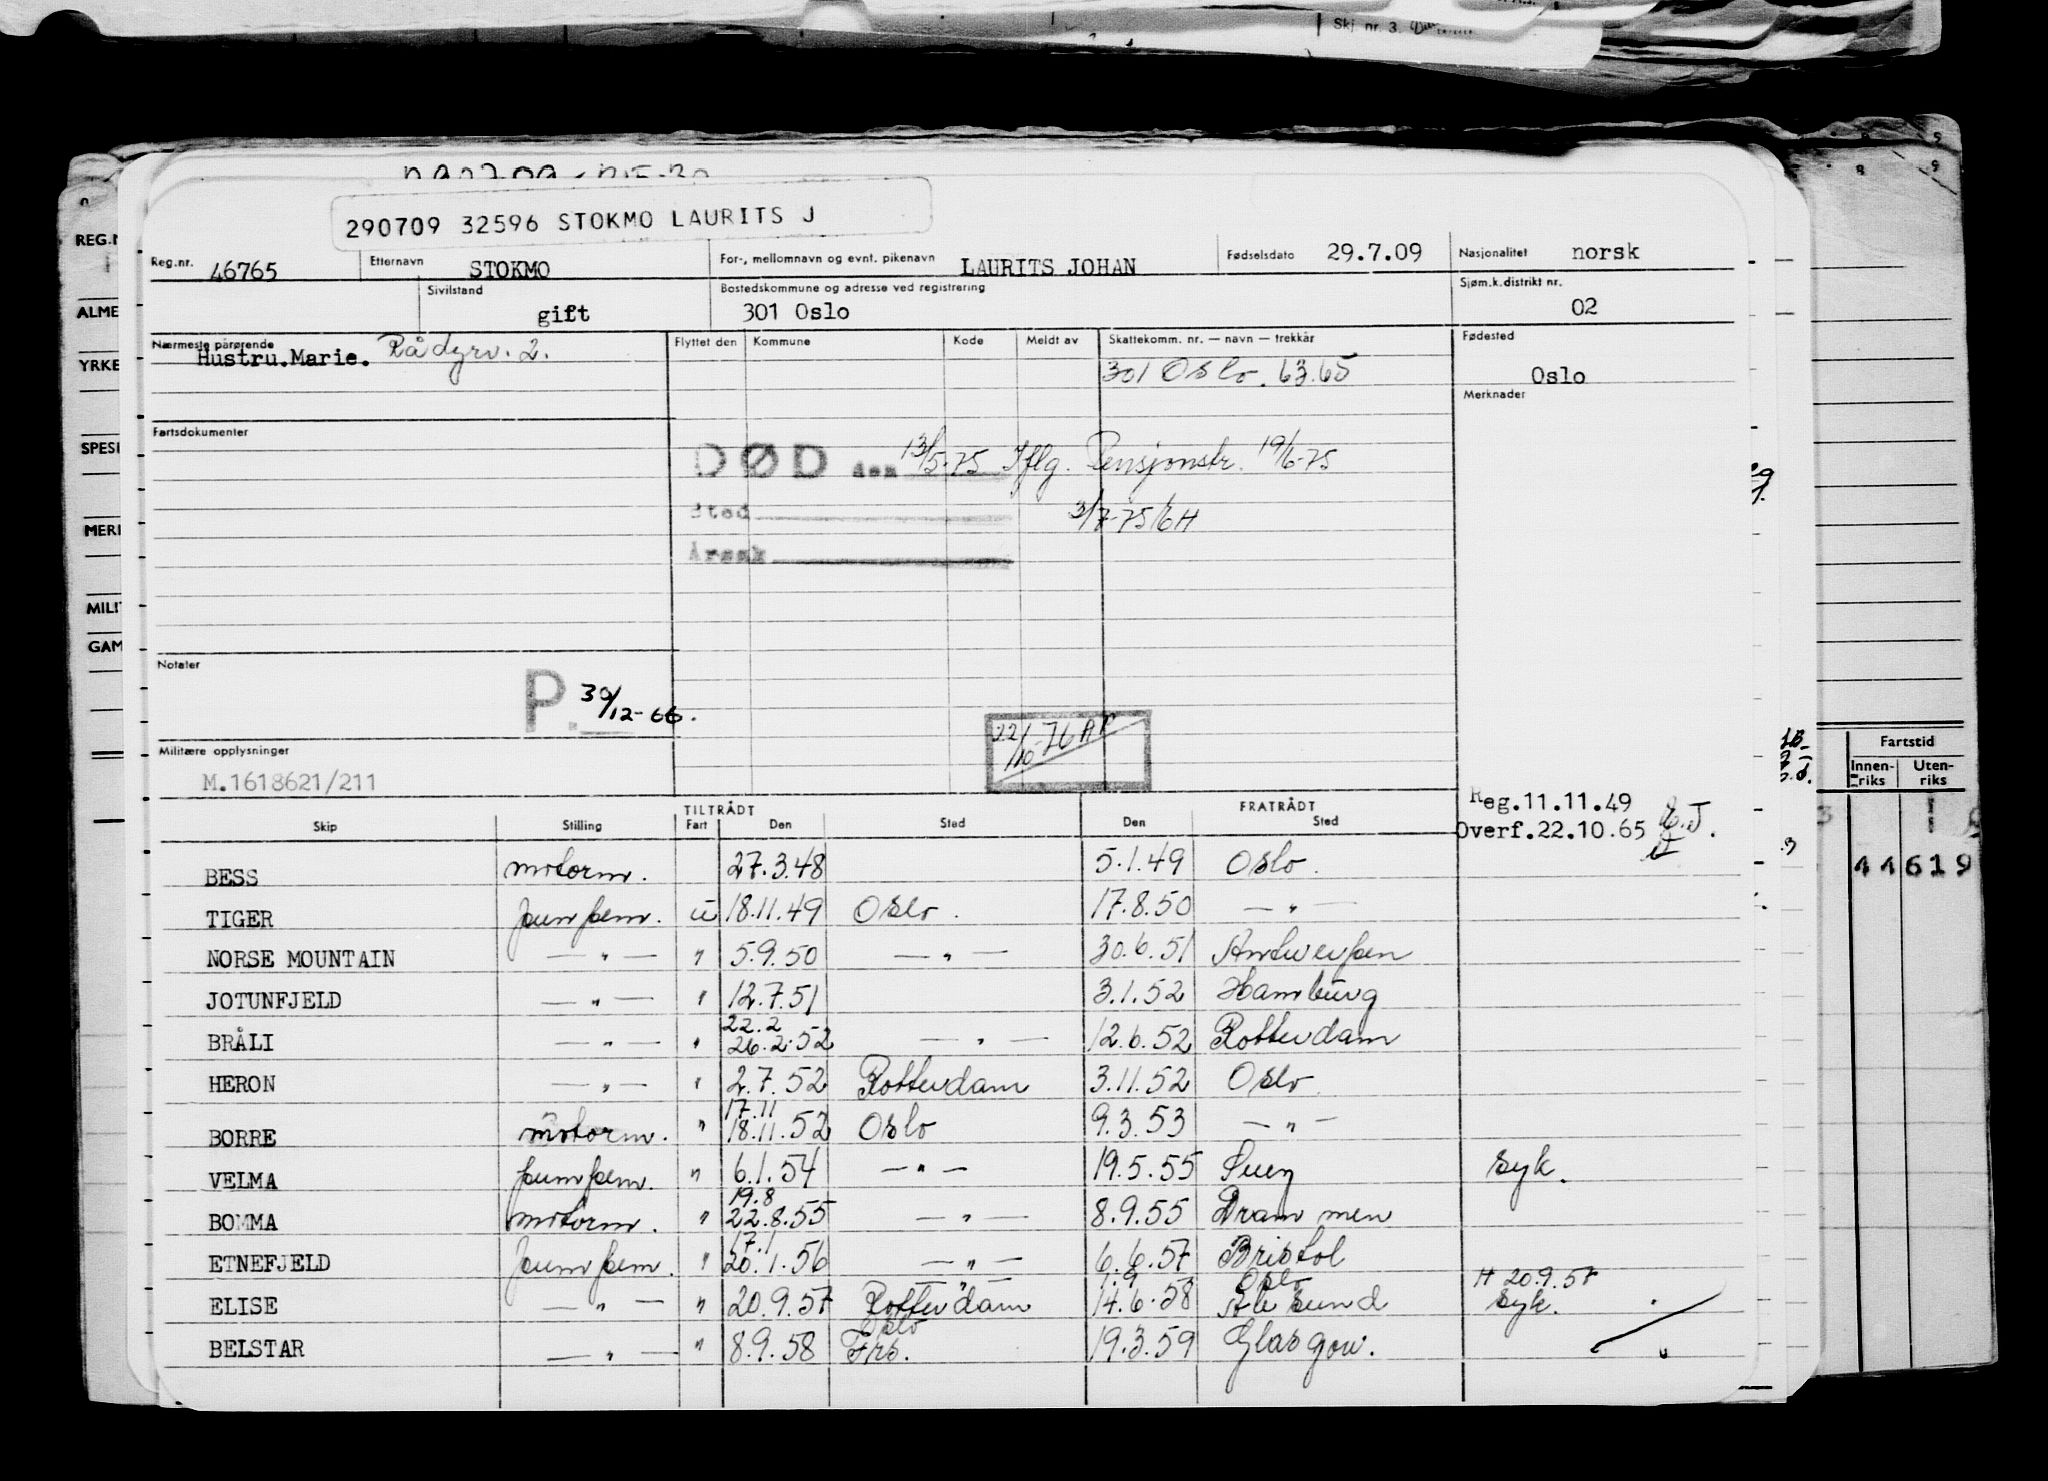 Skj. nr. 3.
290709 32596 STOKMO LAURITS J
Reg.nr. 46765 Etternavn STOKMO For-, mellomnavn og evnt. pikenavn LAURITS JOHAN Fødselsdato 29.7.09 Nasjonalitet norsk
Sivilstand gift Bostedskommune og adresse ved registrering 301 Oslo Sjøm.k.distrikt nr. 02
Nærmeste pårørende Hustru.Marie. Rådyrv. 2. Flyttet den Kommune Kode Meldt av Skattekomm. nr. — navn — trekkår Fødested
301 Oslo. 63.65 Oslo
Merknader
Fartsdokumenter
DØD den 13/5-75 Iflg. Pensjonstr. 19/6-75
Sted 3/7-75
Årsak
Notater
P. 30/12-66.
22/10-76 AP
Militære opplysninger
M.1618621/211
Reg.11.11.49
Overf.22.10.65
TILTRÅDT FRATRÅDT
Skip Stilling Fart Den Sted Den Sted
BESS motorm. 27.3.48 5.1.49 Oslo.
TIGER pumpem. u 18.11.49 Oslo. 17.8.50 — " —
NORSE MOUNTAIN — " — " 5.9.50 — " — 30.6.51 Antwerpen
JOTUNFJELD — " — " 12.7.51 3.1.52 Hamburg
22.2
BRÅLI — " — " 26.2.52 — " — 12.6.52 Rotterdam
HERON — " — " 2.7.52 Rotterdam 3.11.52 Oslo
17.11
BORRE motorm. " 18.11.52 Oslo 9.3.53 — " —
VELMA pumpem. " 6.1.54 — " — 19.5.55 Suez syk.
19.8
BOMMA motorm. " 22.8.55 — " — 8.9.55 Drammen
17.1
ETNEFJELD pumpem. " 20.1.56 — " — 6.6.57 Bristol
— " — 1.9 Oslo H 20.9.57
ELISE — " — " 20.9.57 Rotterdam 14.6.58 Ålesund syk.
Oslo
BELSTAR — " — " 8.9.58 Frs. 19.3.59 Glasgow.
REG.N
ALME
YRKE
SPESI
MERI
MILIT
GAM
Fartstid
Innen-riks Uten-riks
44 619